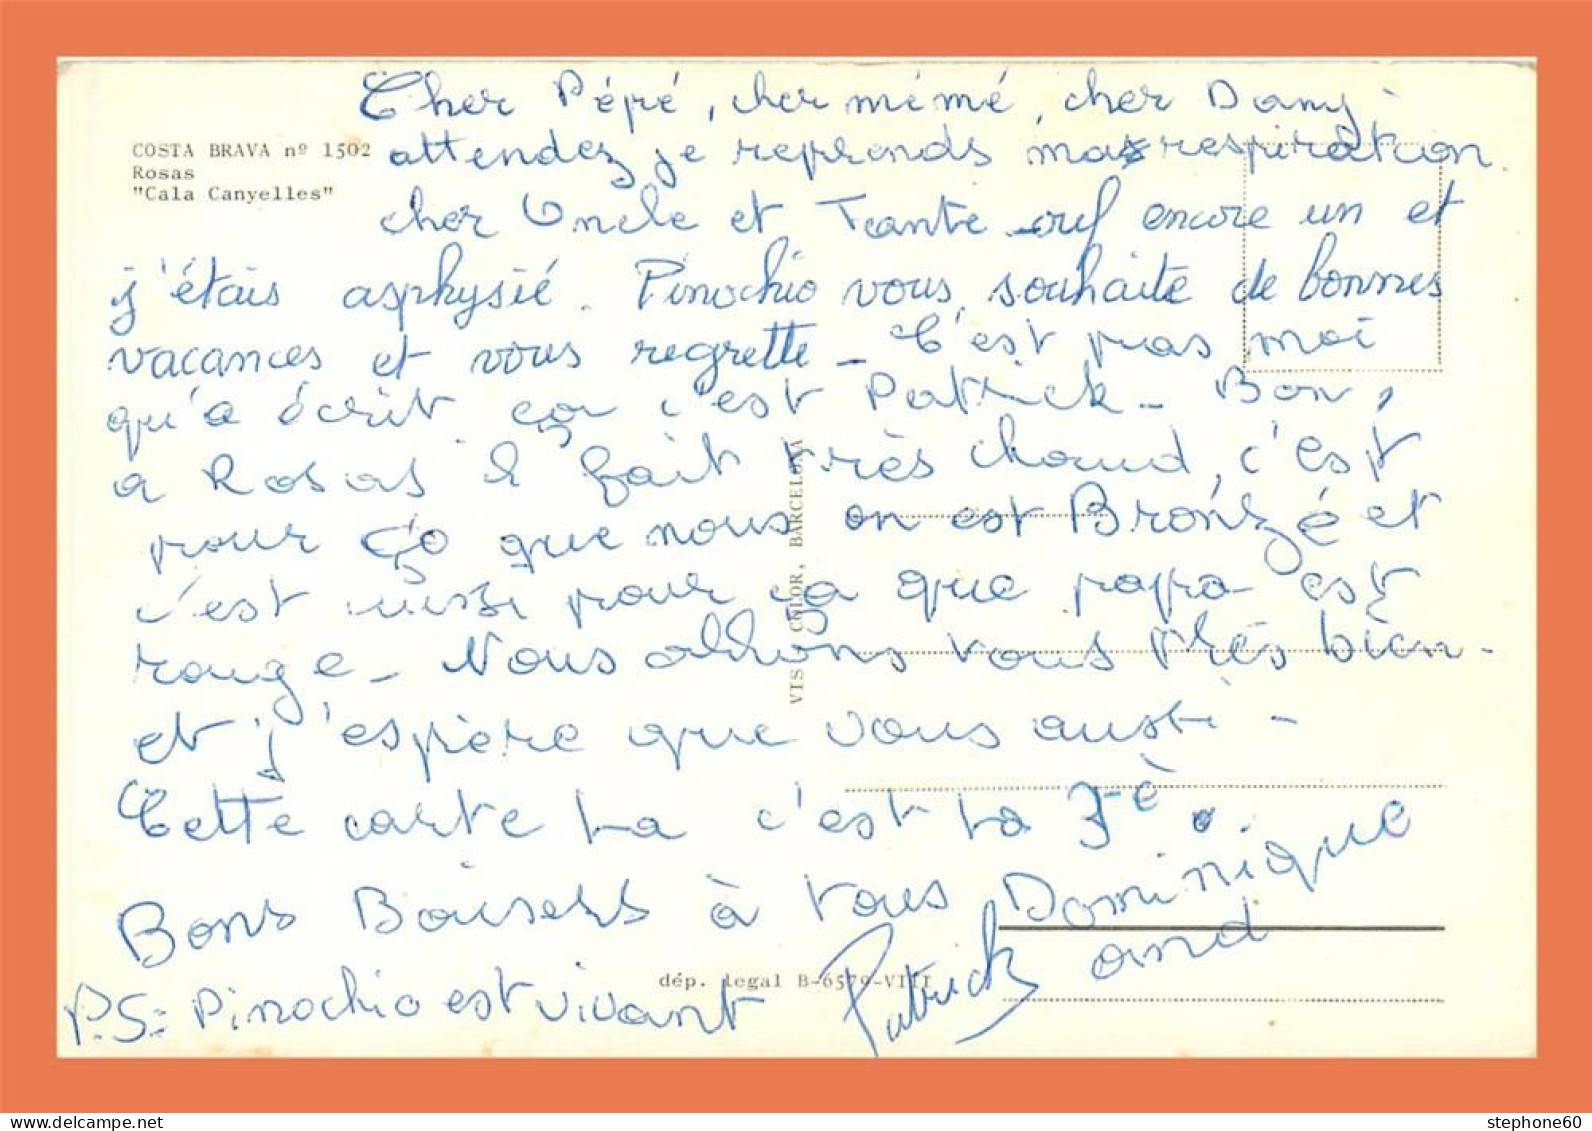 Cher Pépé, cher mémé, cher Dany -
COSTA BRAVA nº 1502
Rosas
"Cala Canyelles"
attendez je reprends ma respiration.
cher Oncle et Tante ouf encore un et
j'étais asphysié. Pinochio vous souhaite de bonnes
vacances et vous regrette - C'est pas moi
qu'a écrit ça c'est Patrick - Bon,
a Rosas il fait très chaud, c'est
pour ço que nous on est Bronzé et
c'est aussi pour ça que papa est
rouge - Nous allons vous très bien -
et j'espère que vous aussi -
Cette carte la c'est la 3è.
Bons Baisers à tous Dominique
and
Patrick
P.S: Pinochio est vivant
VIS COLOR, BARCELONA
dép. legal B-6579-VIII
stephone60